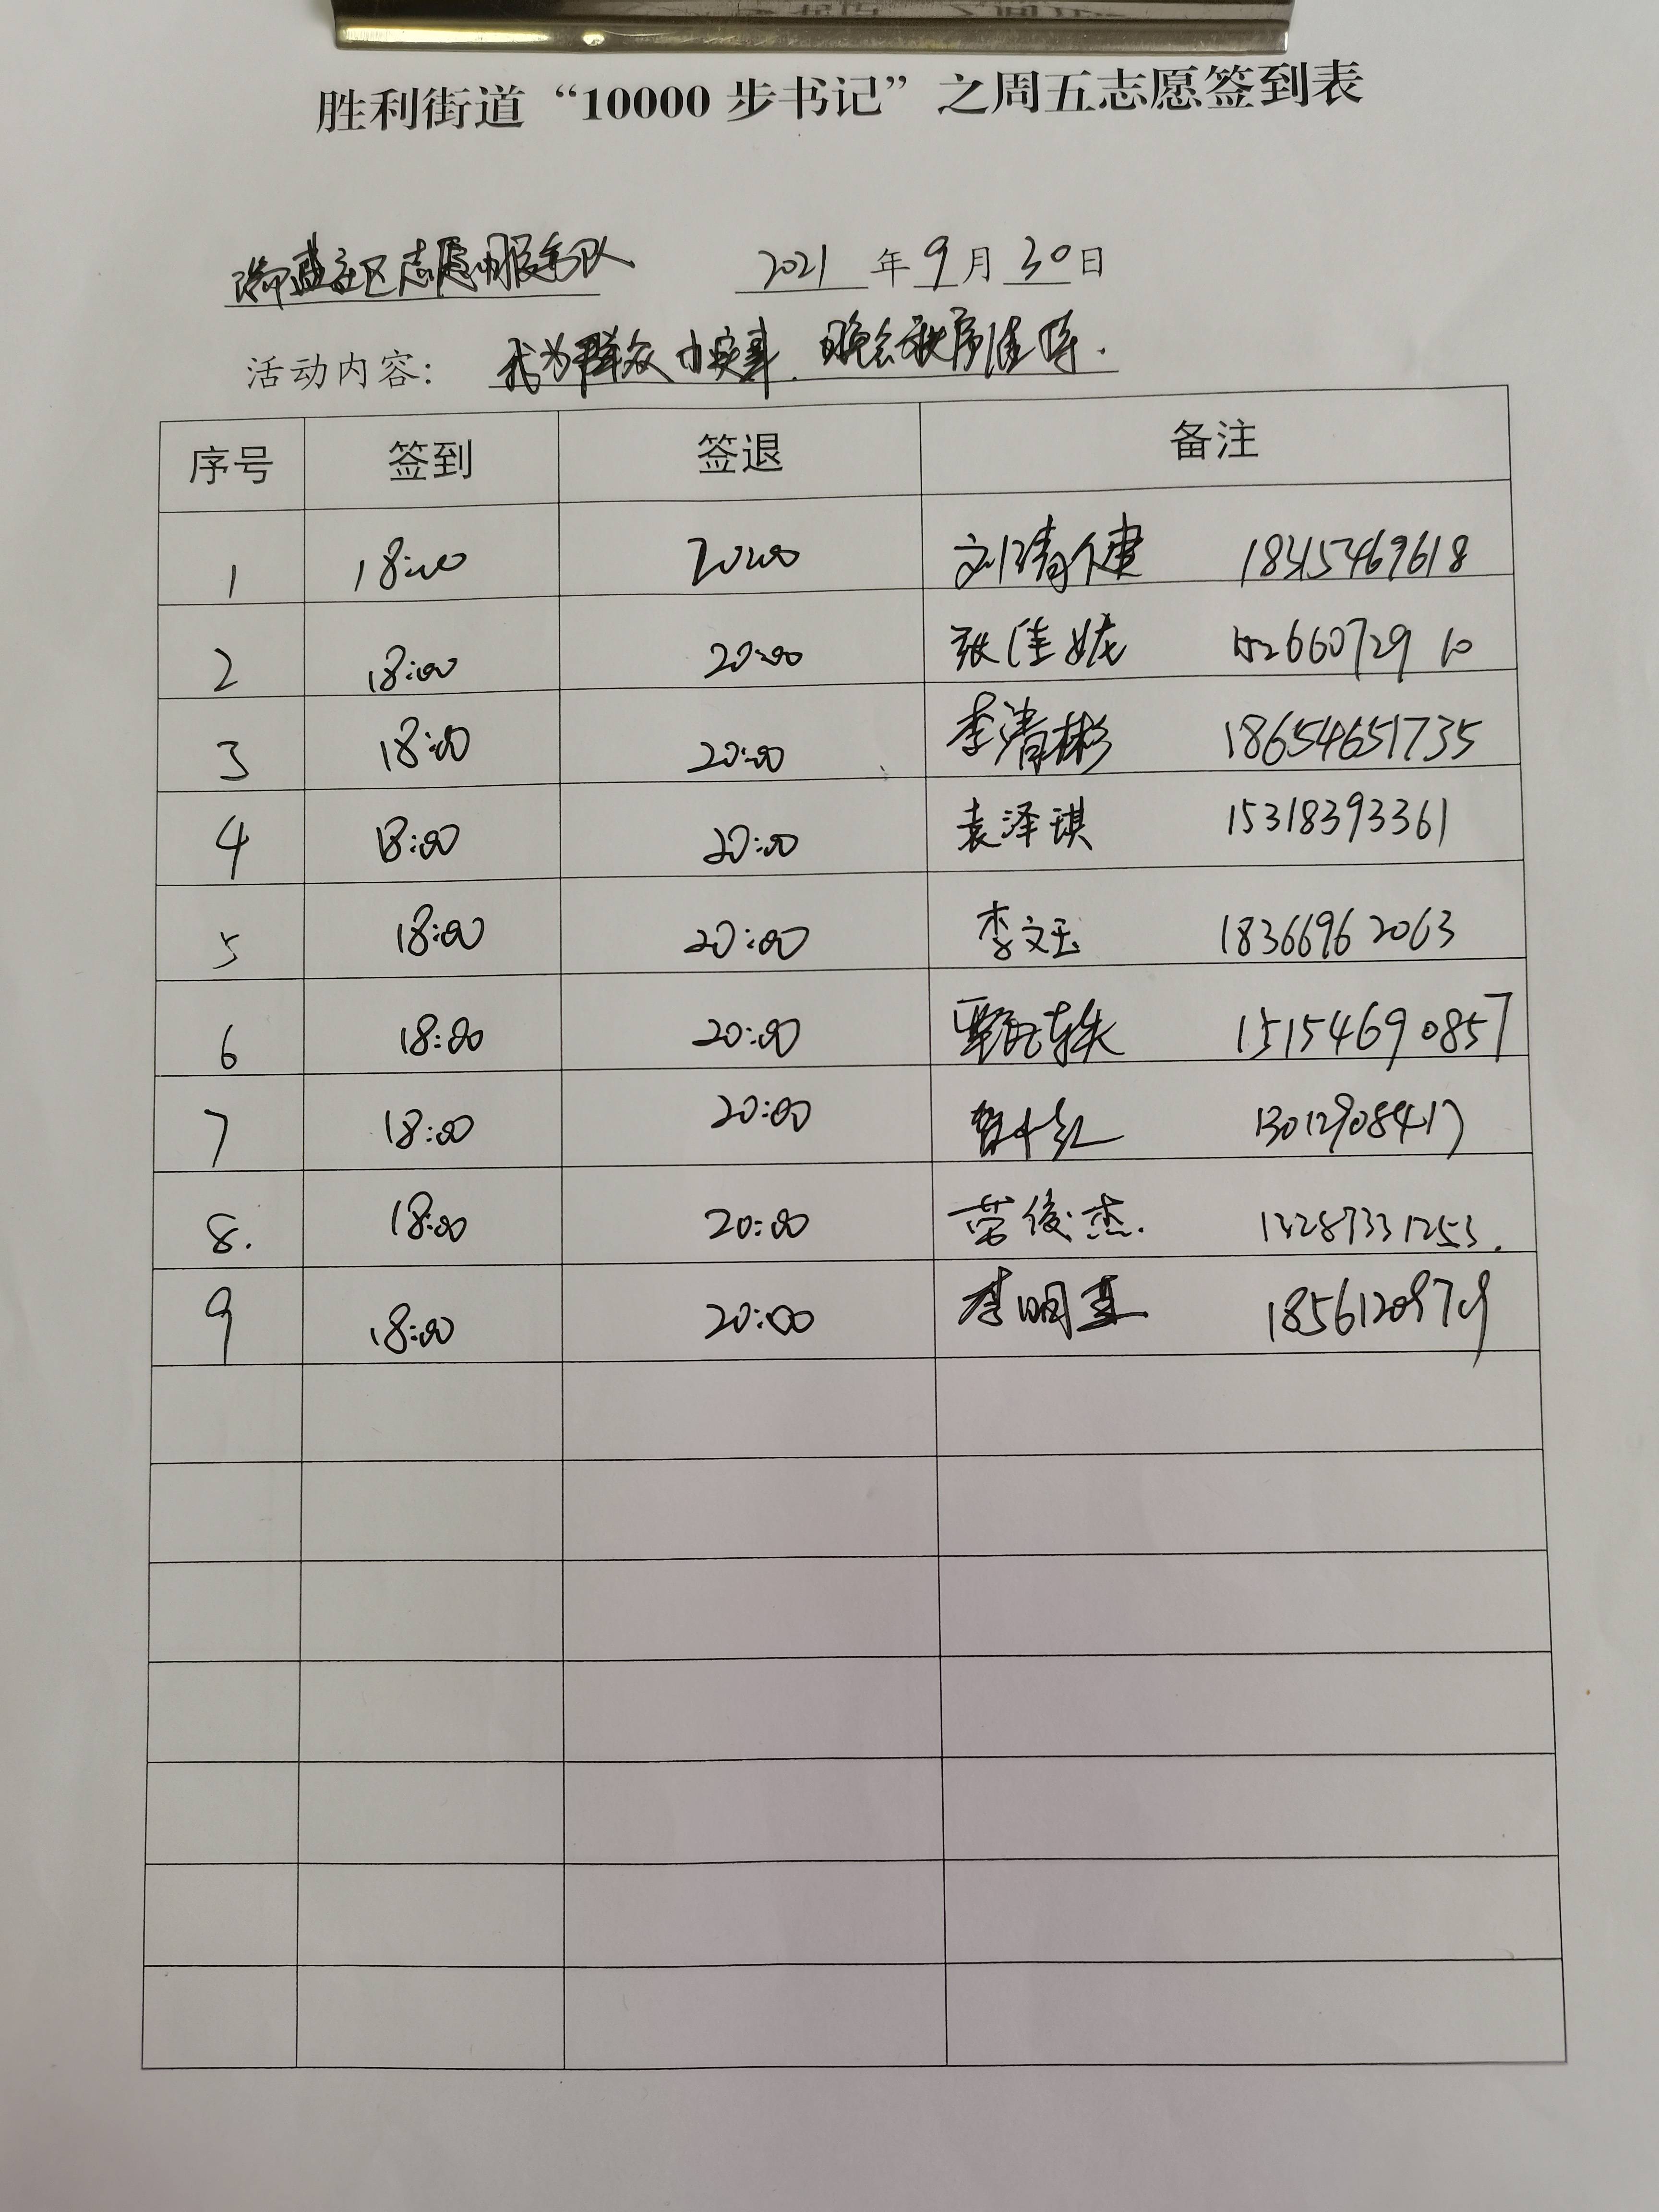 胜利街道“10000 步书记”之周五志愿签到表
社区志愿服务队 2021 年 9 月 30 日
活动内容：我为群众办实事、晚会秩序维持.
序号 签到 签退 备注
1 18:00 20:00
2 18:00 20:00 张佳 15266072910
3 18:00 20:00 李清彬 18654651735
4 18:00 20:00 袁泽琪 15318393361
5 18:00 20:00 李文玉 18366962063
6 18:00 20:00 15154690857
7 18:00 20:00 13012908417
8. 18:00 20:00 俊杰. 13287331253.
9 18:00 20:00 李明 18561209709